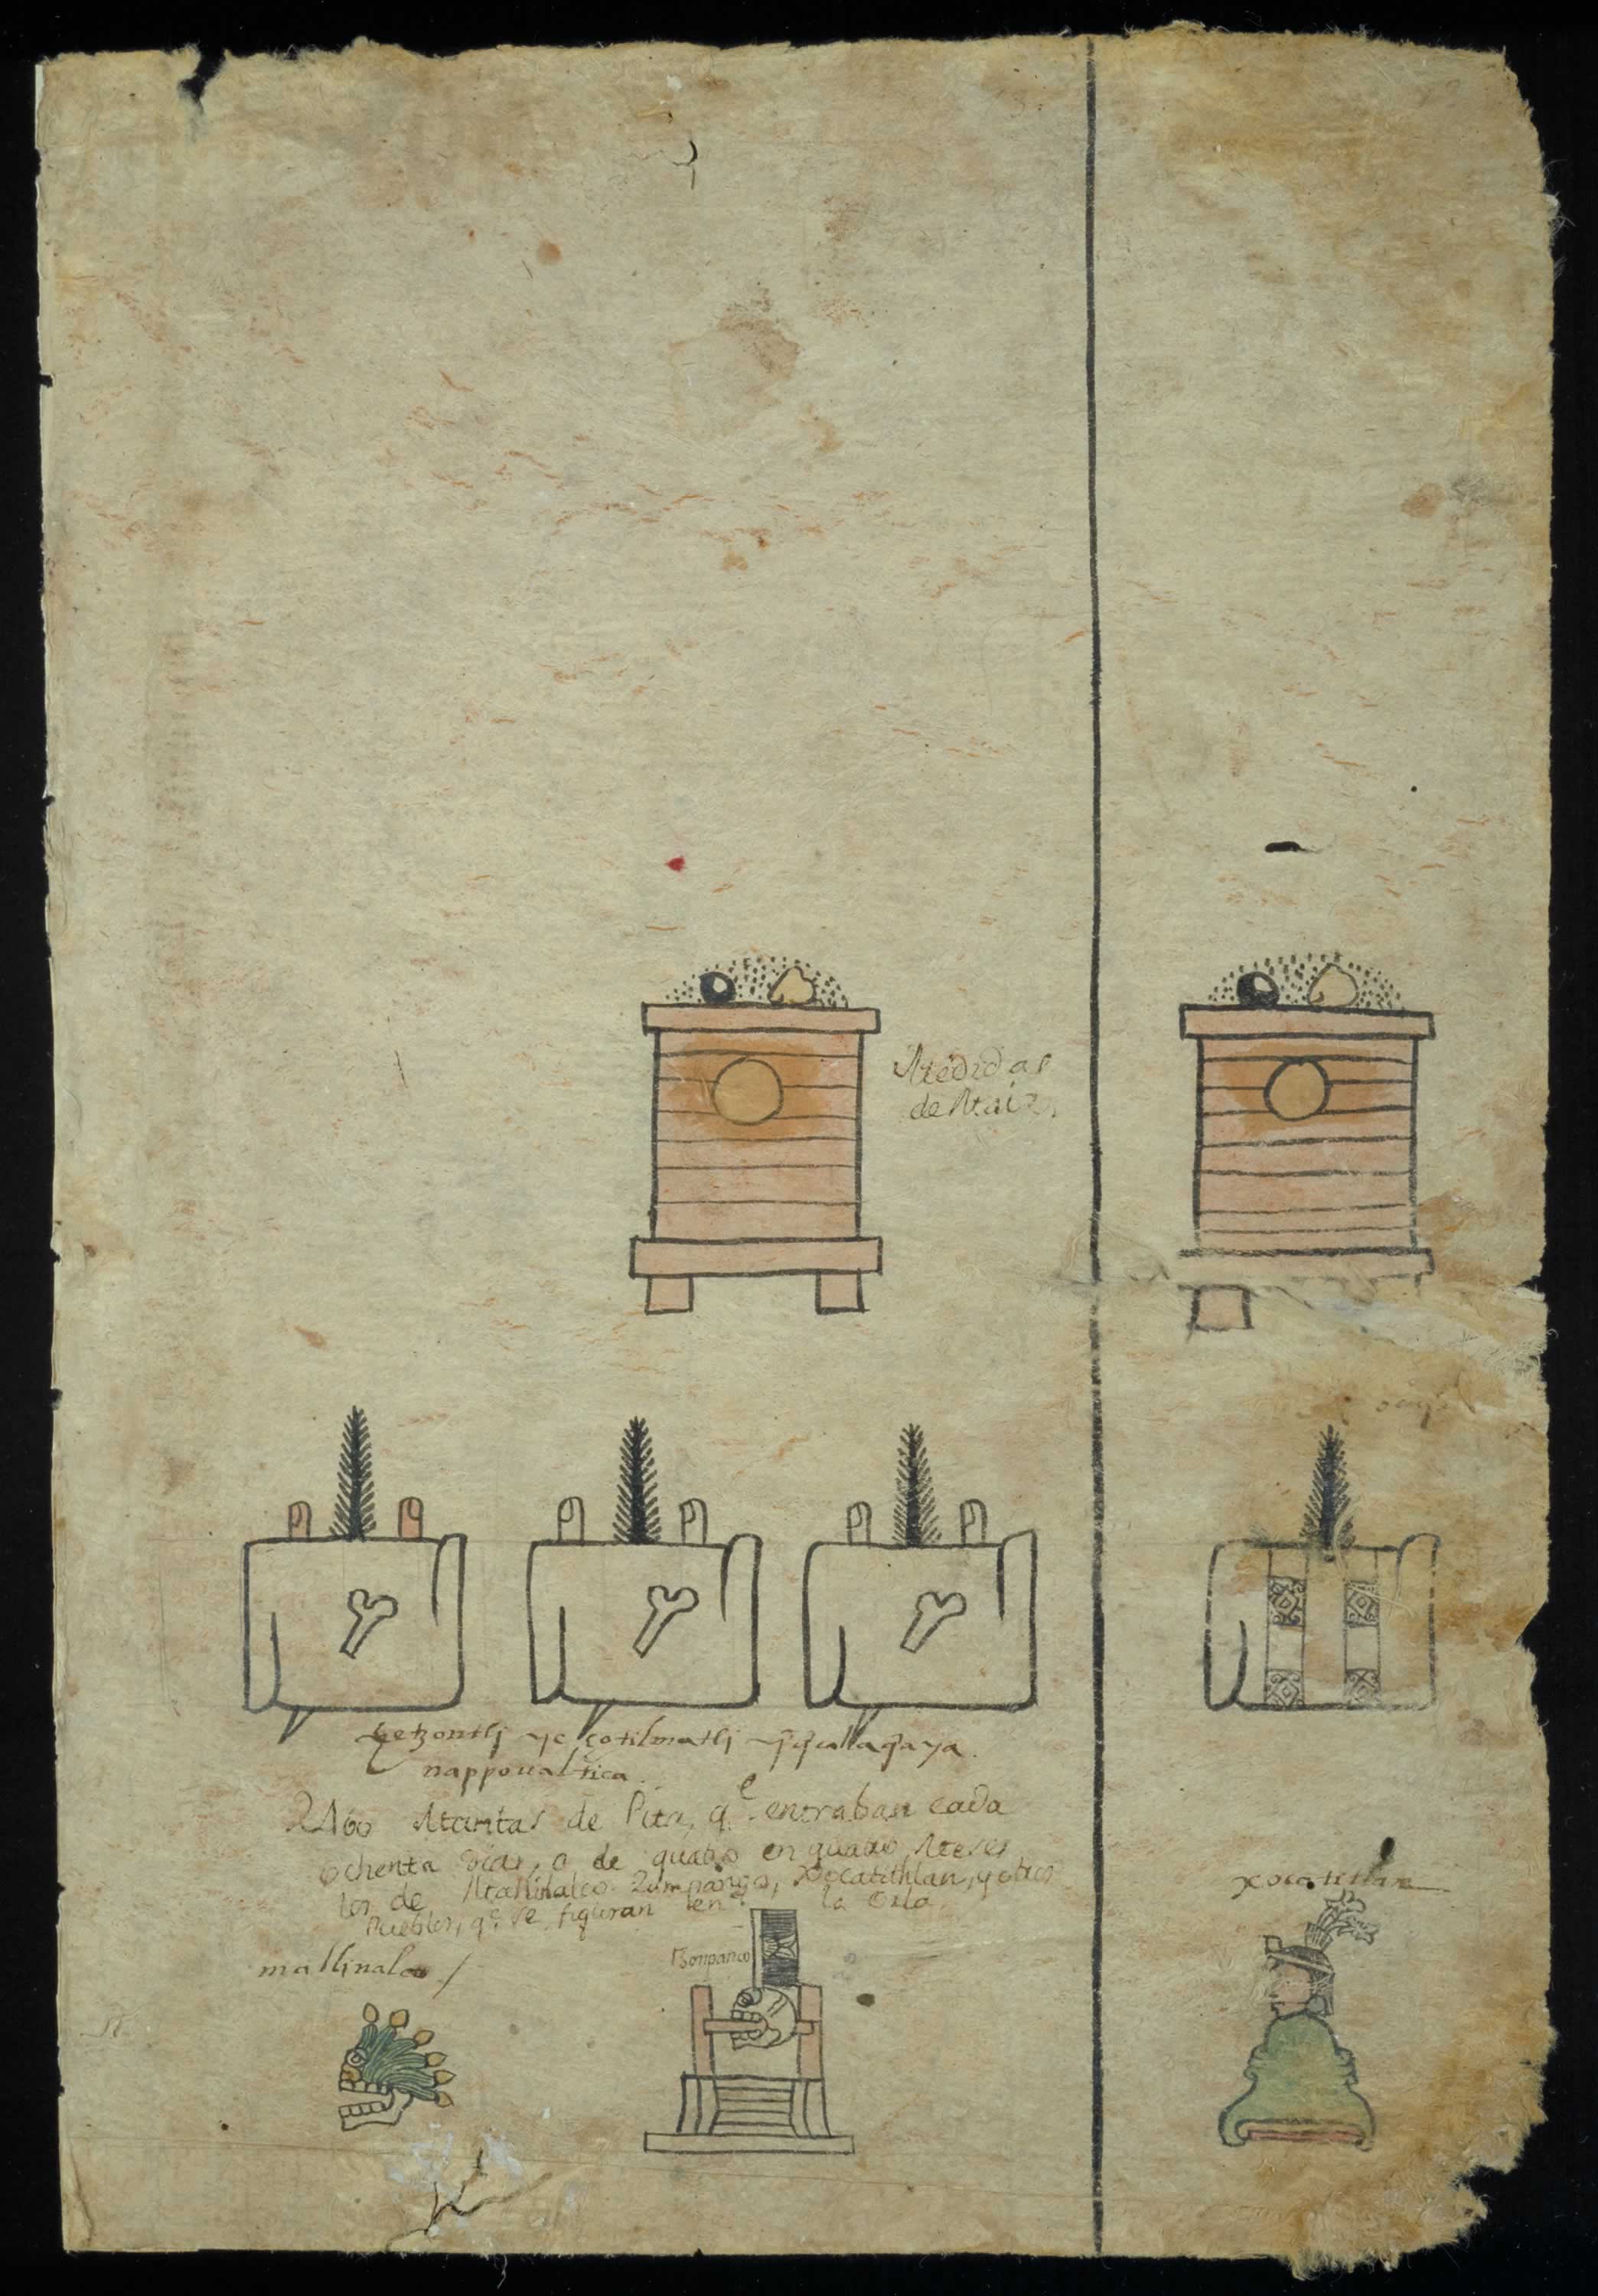 Medidas
de Maiz,
yetzontli yc çotilmatli
nappoualtica
Mantas de Pita, q.e entraban cada
ochenta dias, o de quatro en quatro Meses
los de Malinalco Zumpango, Xocatithlan, y otros
Pueblos, q.e se figuran en la Orla
mallinalco /
Tzompanco
xocotitlan